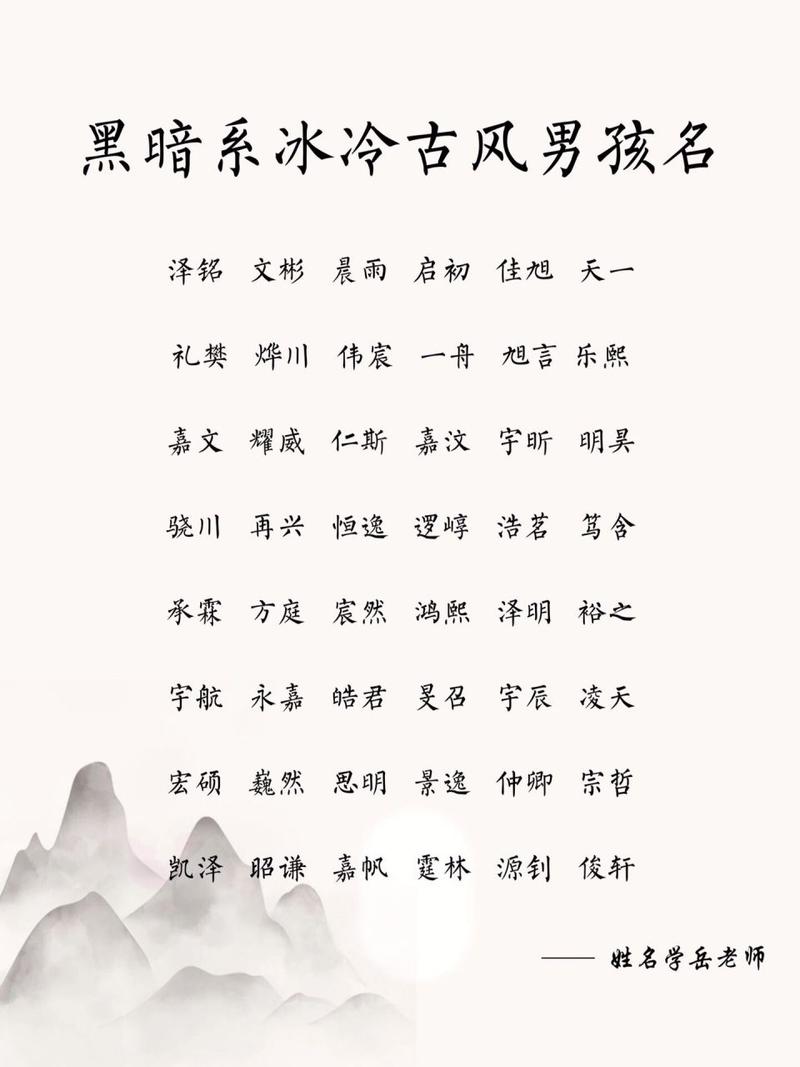 黑暗系冰冷古风男孩名
泽铭 文彬 晨雨 启初 佳旭 天一
礼樊 烨川 伟宸 一舟 旭言 乐熙
嘉文 耀威 仁斯 嘉汶 宇昕 明昊
骁川 再兴 恒逸 逻崞 浩茗 笃含
承霖 方庭 宸然 鸿熙 泽明 裕之
宇航 永嘉 皓君 旻召 宇辰 凌天
宏硕 巍然 思明 景逸 仲卿 宗哲
凯泽 昭谦 嘉帆 霆林 源钊 俊轩
—— 姓名学岳老师